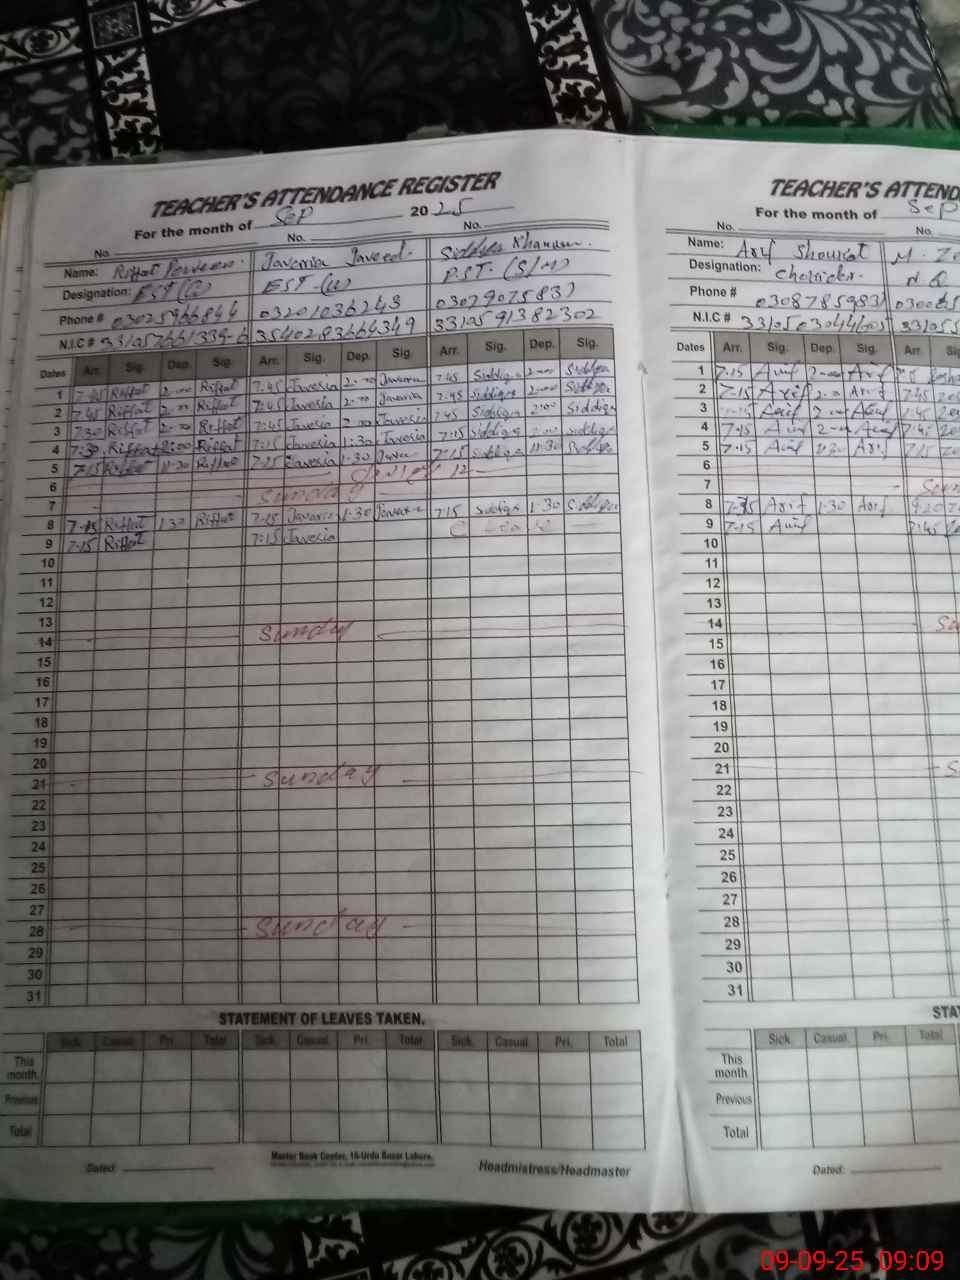 TEACHER'S ATTENDANCE REGISTER
For the month of Sep 2025
No. No. No.
Name: Riffat Perveen. Javeria Javeed. Siddiqa Khanum.
Designation: EST(G) EST-(U) P.S.T. (S/M)
Phone # 03025966844 03201036243
N.I.C # 3540283664349 3310591382302
Dates Arr. Sig. Dep. Sig. Arr. Sig. Dep. Sig. Arr. Sig. Dep. Sig.
1 7-45 Riffat 2-00 Riffat 7.45 Javeria 2-00 Javeria 7.45 Siddiqa 2-00 Siddiqa
2 7.45 Riffat 2-00 Riffat 7:45 Javeria 2-00 Javeria 7.45 Siddiqa 2-00 Siddiqa
3 7:30 Riffat 2-00 Riffat 7:45 Javeria 2-00 Javeria 7.45 Siddiqa 2:00 Siddiqa
4 7.30 Riffat 2:00 Riffat 7:15 Javeria 1:30 Javeria 7:15 Siddiqa 11:30 Siddiqa
5 7:15 Riffat 11:30 Riffat 7-15 Javeria 1-30 7:15 Siddiqa 11:30
6 12
7 Sunday
8 7-15 Riffat 1:30 Riffat 7-15 Javeria 1-30 Javeria 7:15 Siddiqa 1-30 Siddiqa
9 7-15 Riffat 7:15 Javeria C Leave
10
11
12
13
14 Sunday
15
16
17
18
19
20
21 Sunday
22
23
24
25
26
27
28 Sunday
29
30
31
STATEMENT OF LEAVES TAKEN.
Sick. Casual. Pri. Total Sick. Casual. Pri. Total Sick. Casual. Pri. Total
This month
Previous
Total
Dated: Master Book Center, 16-Urdu Bazar Lahore. Headmistress/Headmaster
TEACHER'S ATTEND
For the month of Sep
No. No.
Name: Arif Shoukat M.
Designation:
Phone # 0300
N.I.C #
Dates Arr. Sig. Dep. Sig. Arr.
1 7-15 Arif 2-00 Arif
2 7-15 Arif 2-00 Arif 7.45
3 Arif 2-00 Arif
4 7-45 Arif 2-00 Arif
5 7-15 Arif Arif 7.15
6
7
8 Arif 1-30 Arif
9 7-15 Arif 7:45
10
11
12
13
14
15
16
17
18
19
20
21
22
23
24
25
26
27
28
29
30
31
Sick. Casual. Pri. Total
This month
Previous
Total
Dated:
09-09-25 09:09